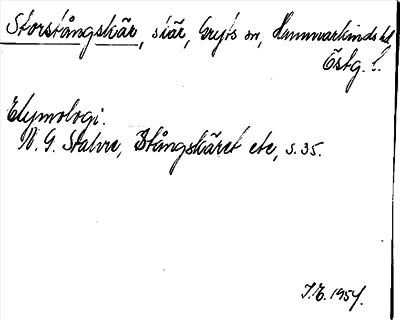 Storstångskär, skär, Gryts sn, Hammarkinds hd
Östg. l.
Etymologi.
N. G. Stahre, Stångskäret etc, s. 35.
J.E. 1954.